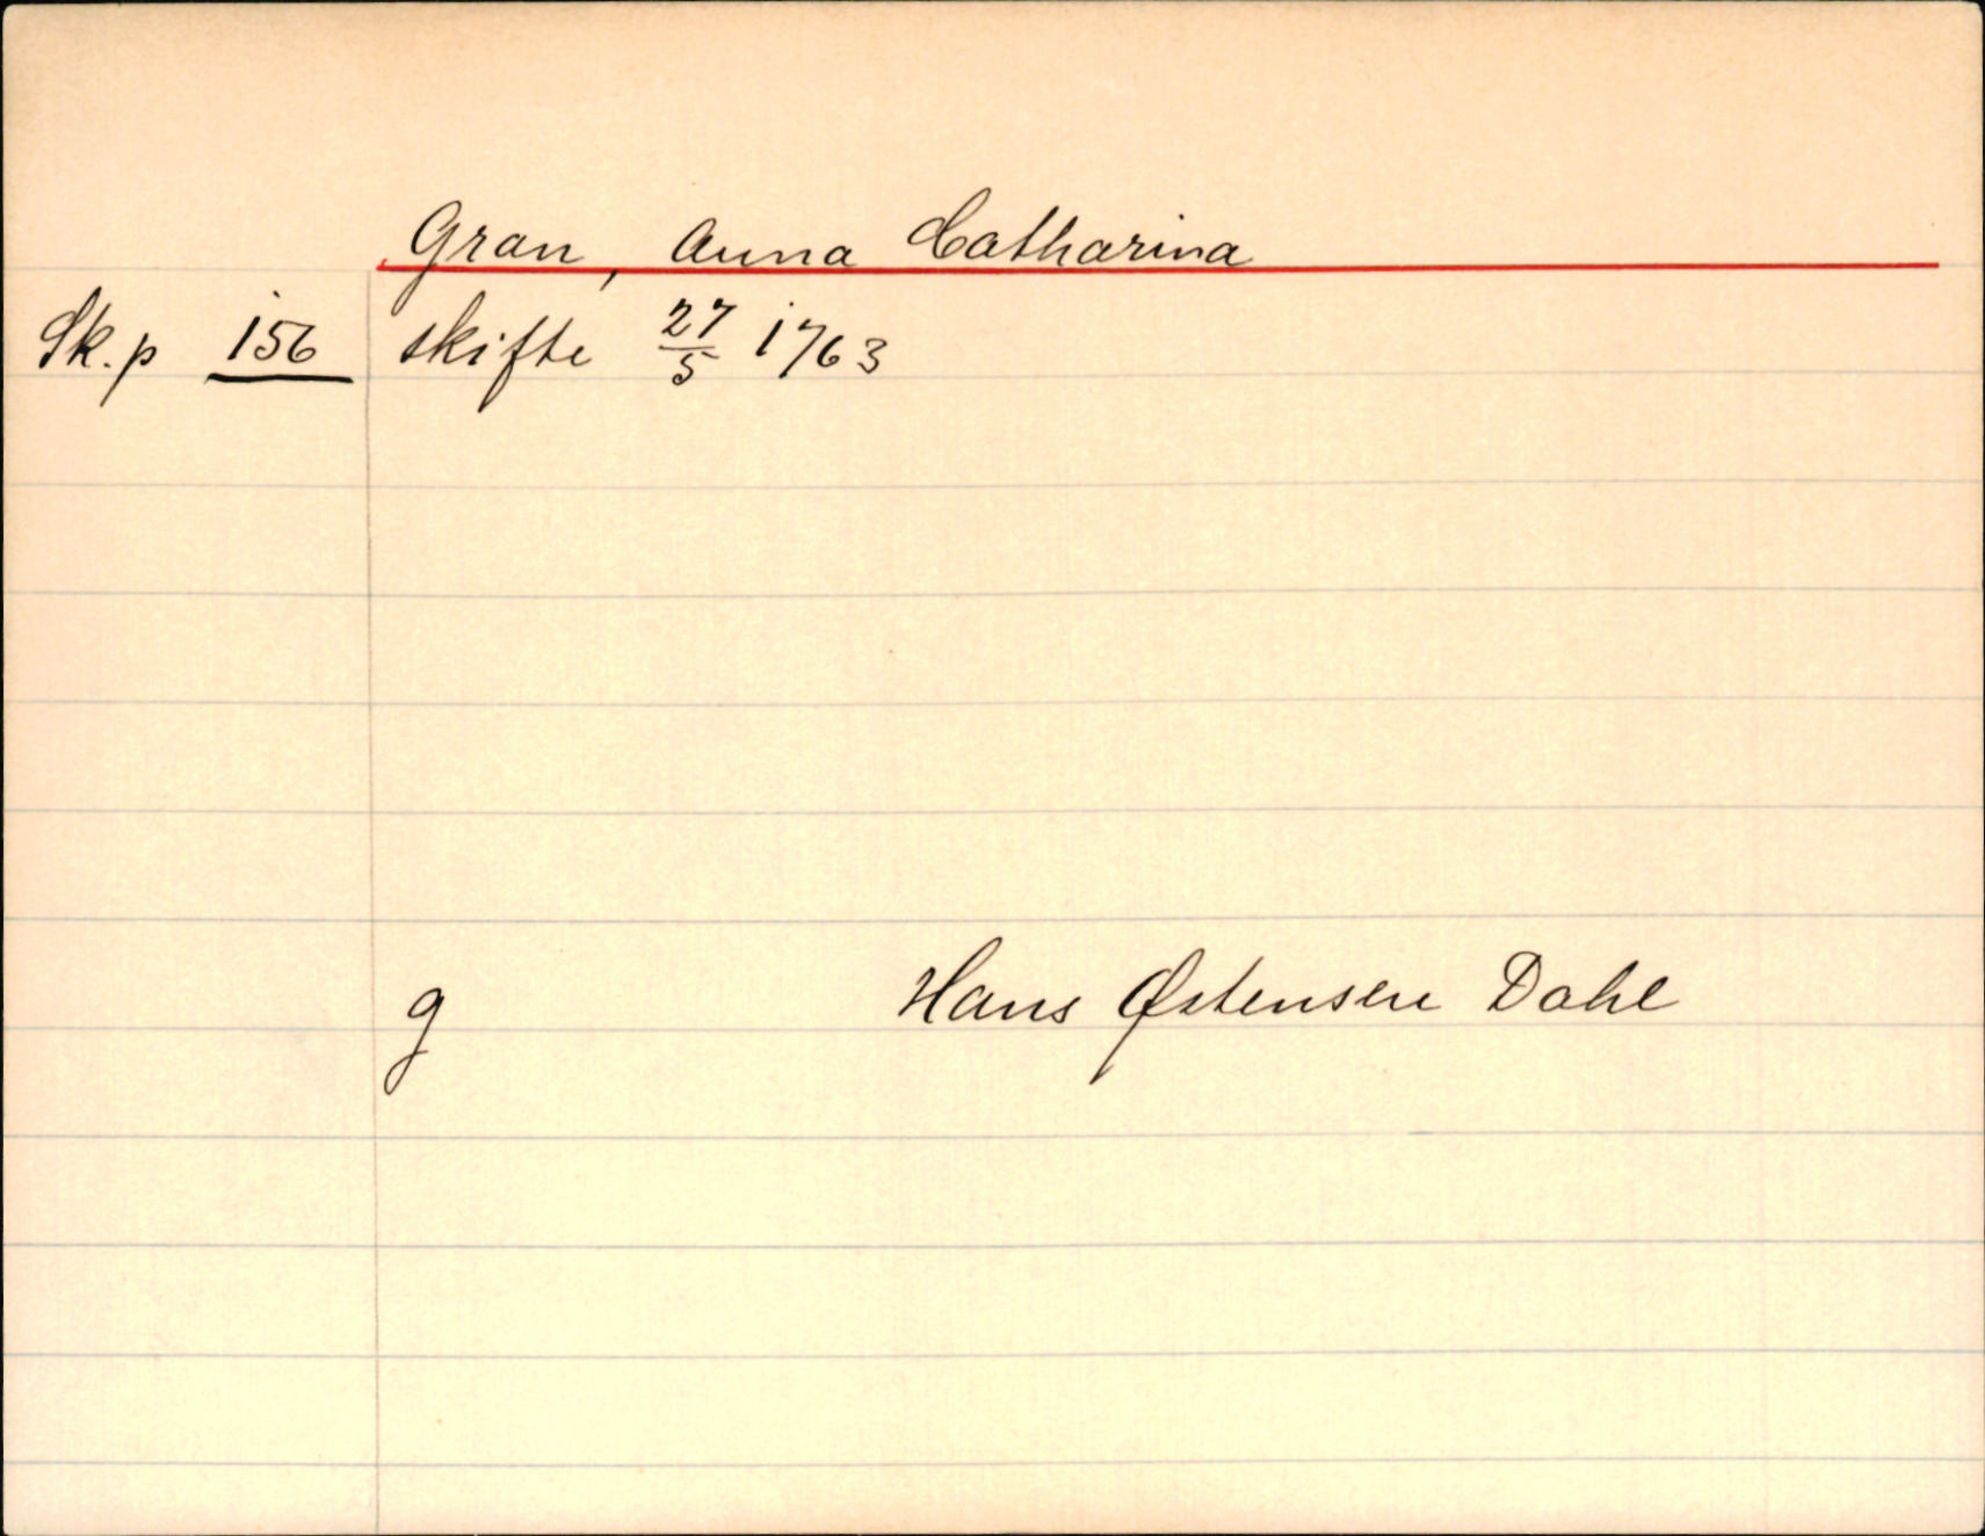 Gran, Anna Catharina
Sk. p 156 skifte 27/5 1763
g Hans Østensen Dahl